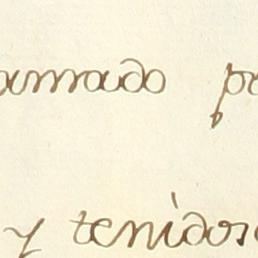 amado p
y tenidos